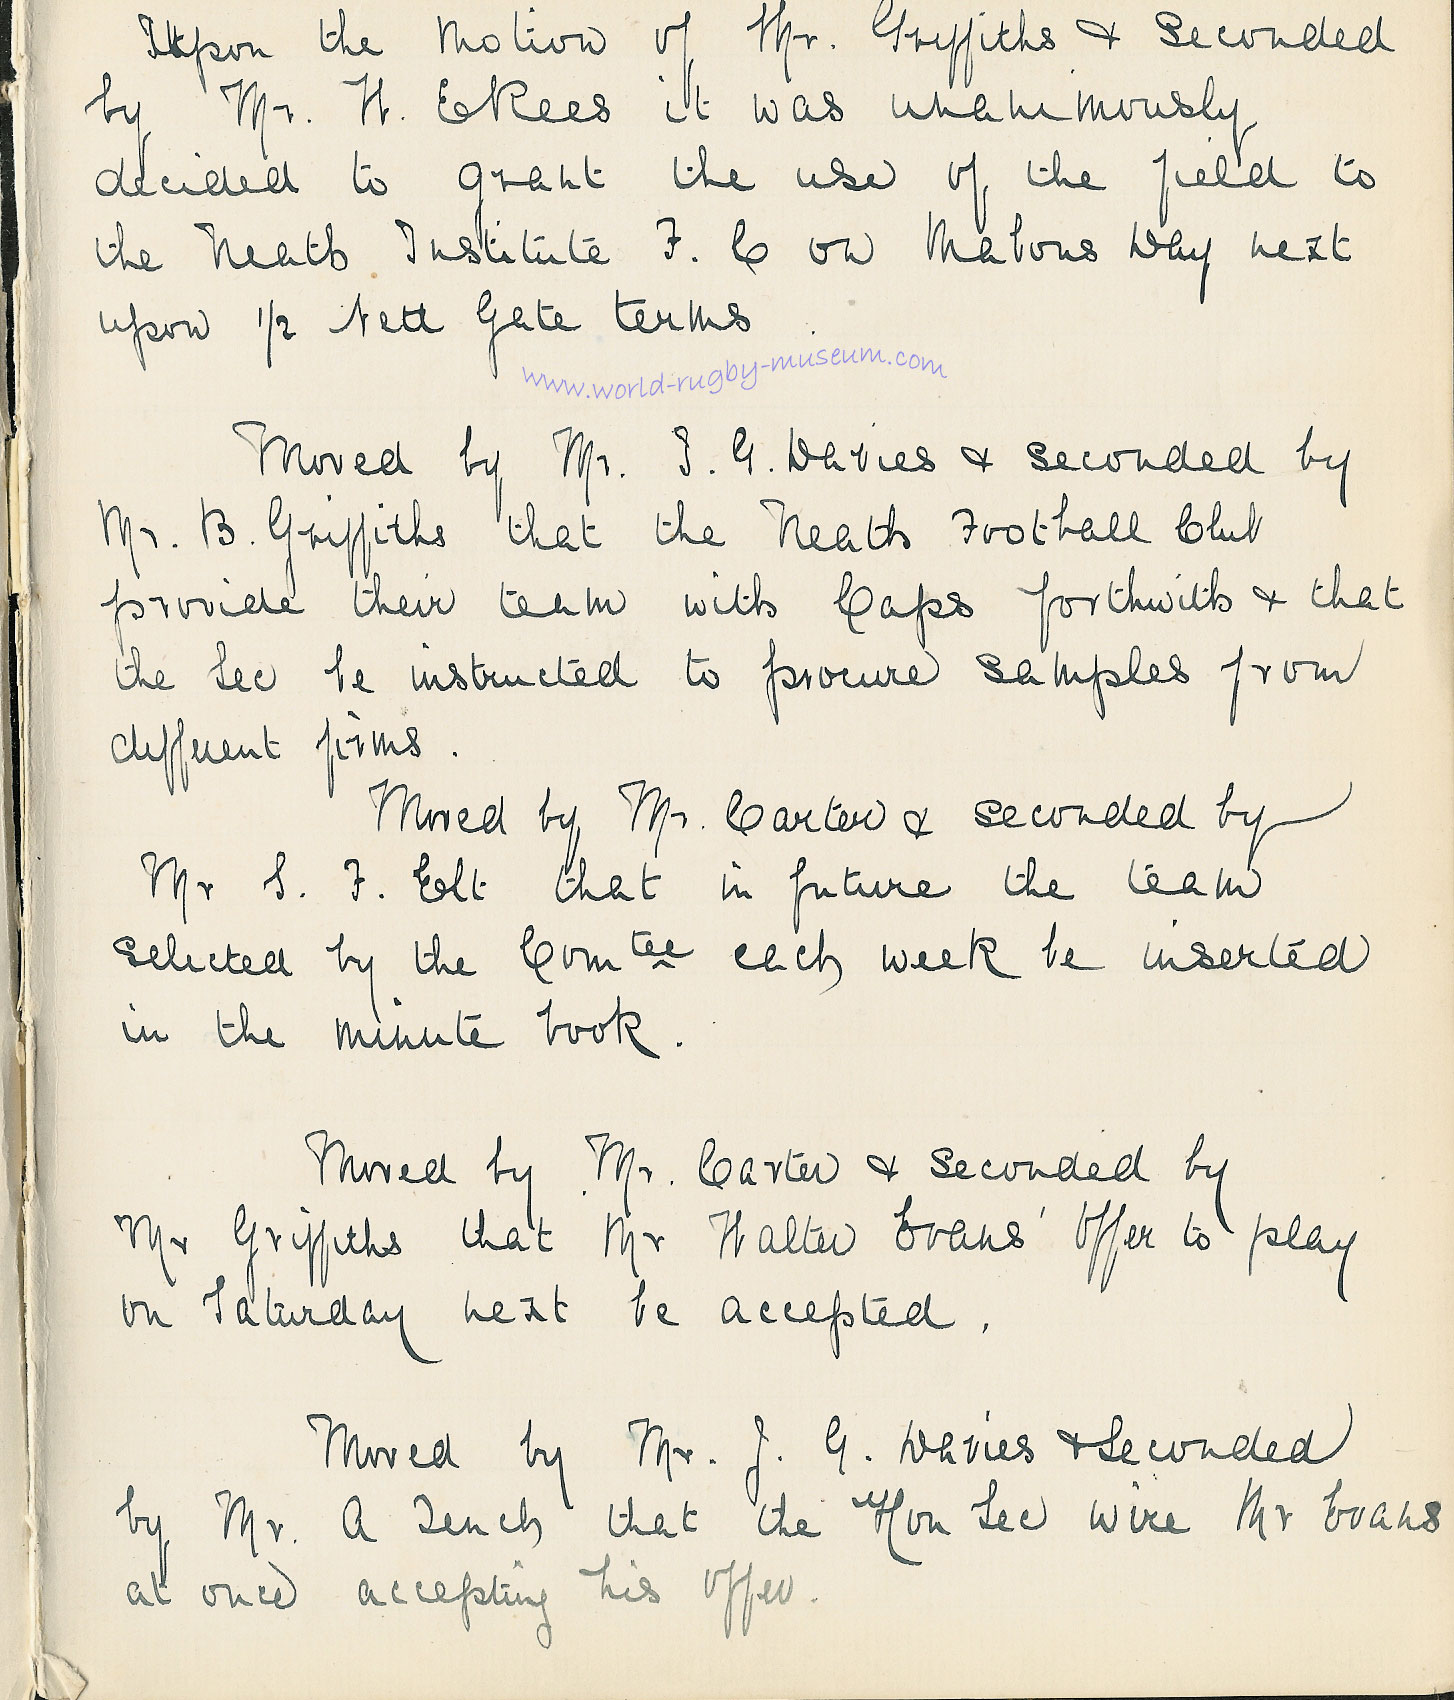 Upon the Motion of Mr. Griffiths & Seconded
by Mr. H. E Rees it was unanimously
decided to grant the use of the field to
the Neath Institute F. C on Mabons Day next
upon 1/2 Nett Gate terms
www.world-rugby-museum.com
Moved by Mr. J. G. Davies & seconded by
Mr. B. Griffiths that the Neath Football Club
provide their team with Caps forthwith & that
the Sec be instructed to procure samples from
different firms.
Moved by Mr. Carter & seconded by
Mr S. F. Elt that in future the team
selected by the Comtee each week be inserted
in the minute book.
Moved by Mr. Carter & Seconded by
Mr Griffiths that Mr Walter Evans' offer to play
on Saturday next be accepted.
Moved by Mr. J. G. Davies & Seconded
by Mr. A Tench that the Hon Sec wire Mr Evans
at once accepting his offer.